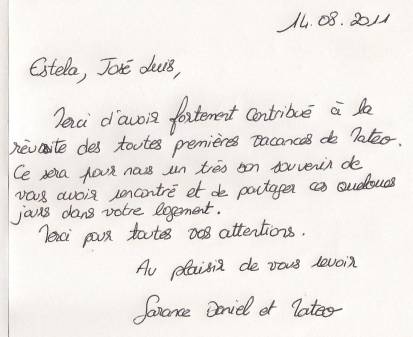 14.08.2011
Estela, José Luis,
Merci d'avoir fortement contribué à la
réussite des toutes premières vacances de Mateo.
Ce sera pour nous un très bon souvenir de
vous avoir rencontré et de partager ces quelques
jours dans votre logement.
Merci pour toutes vos attentions.
Au plaisir de vous revoir
Daniel et Mateo